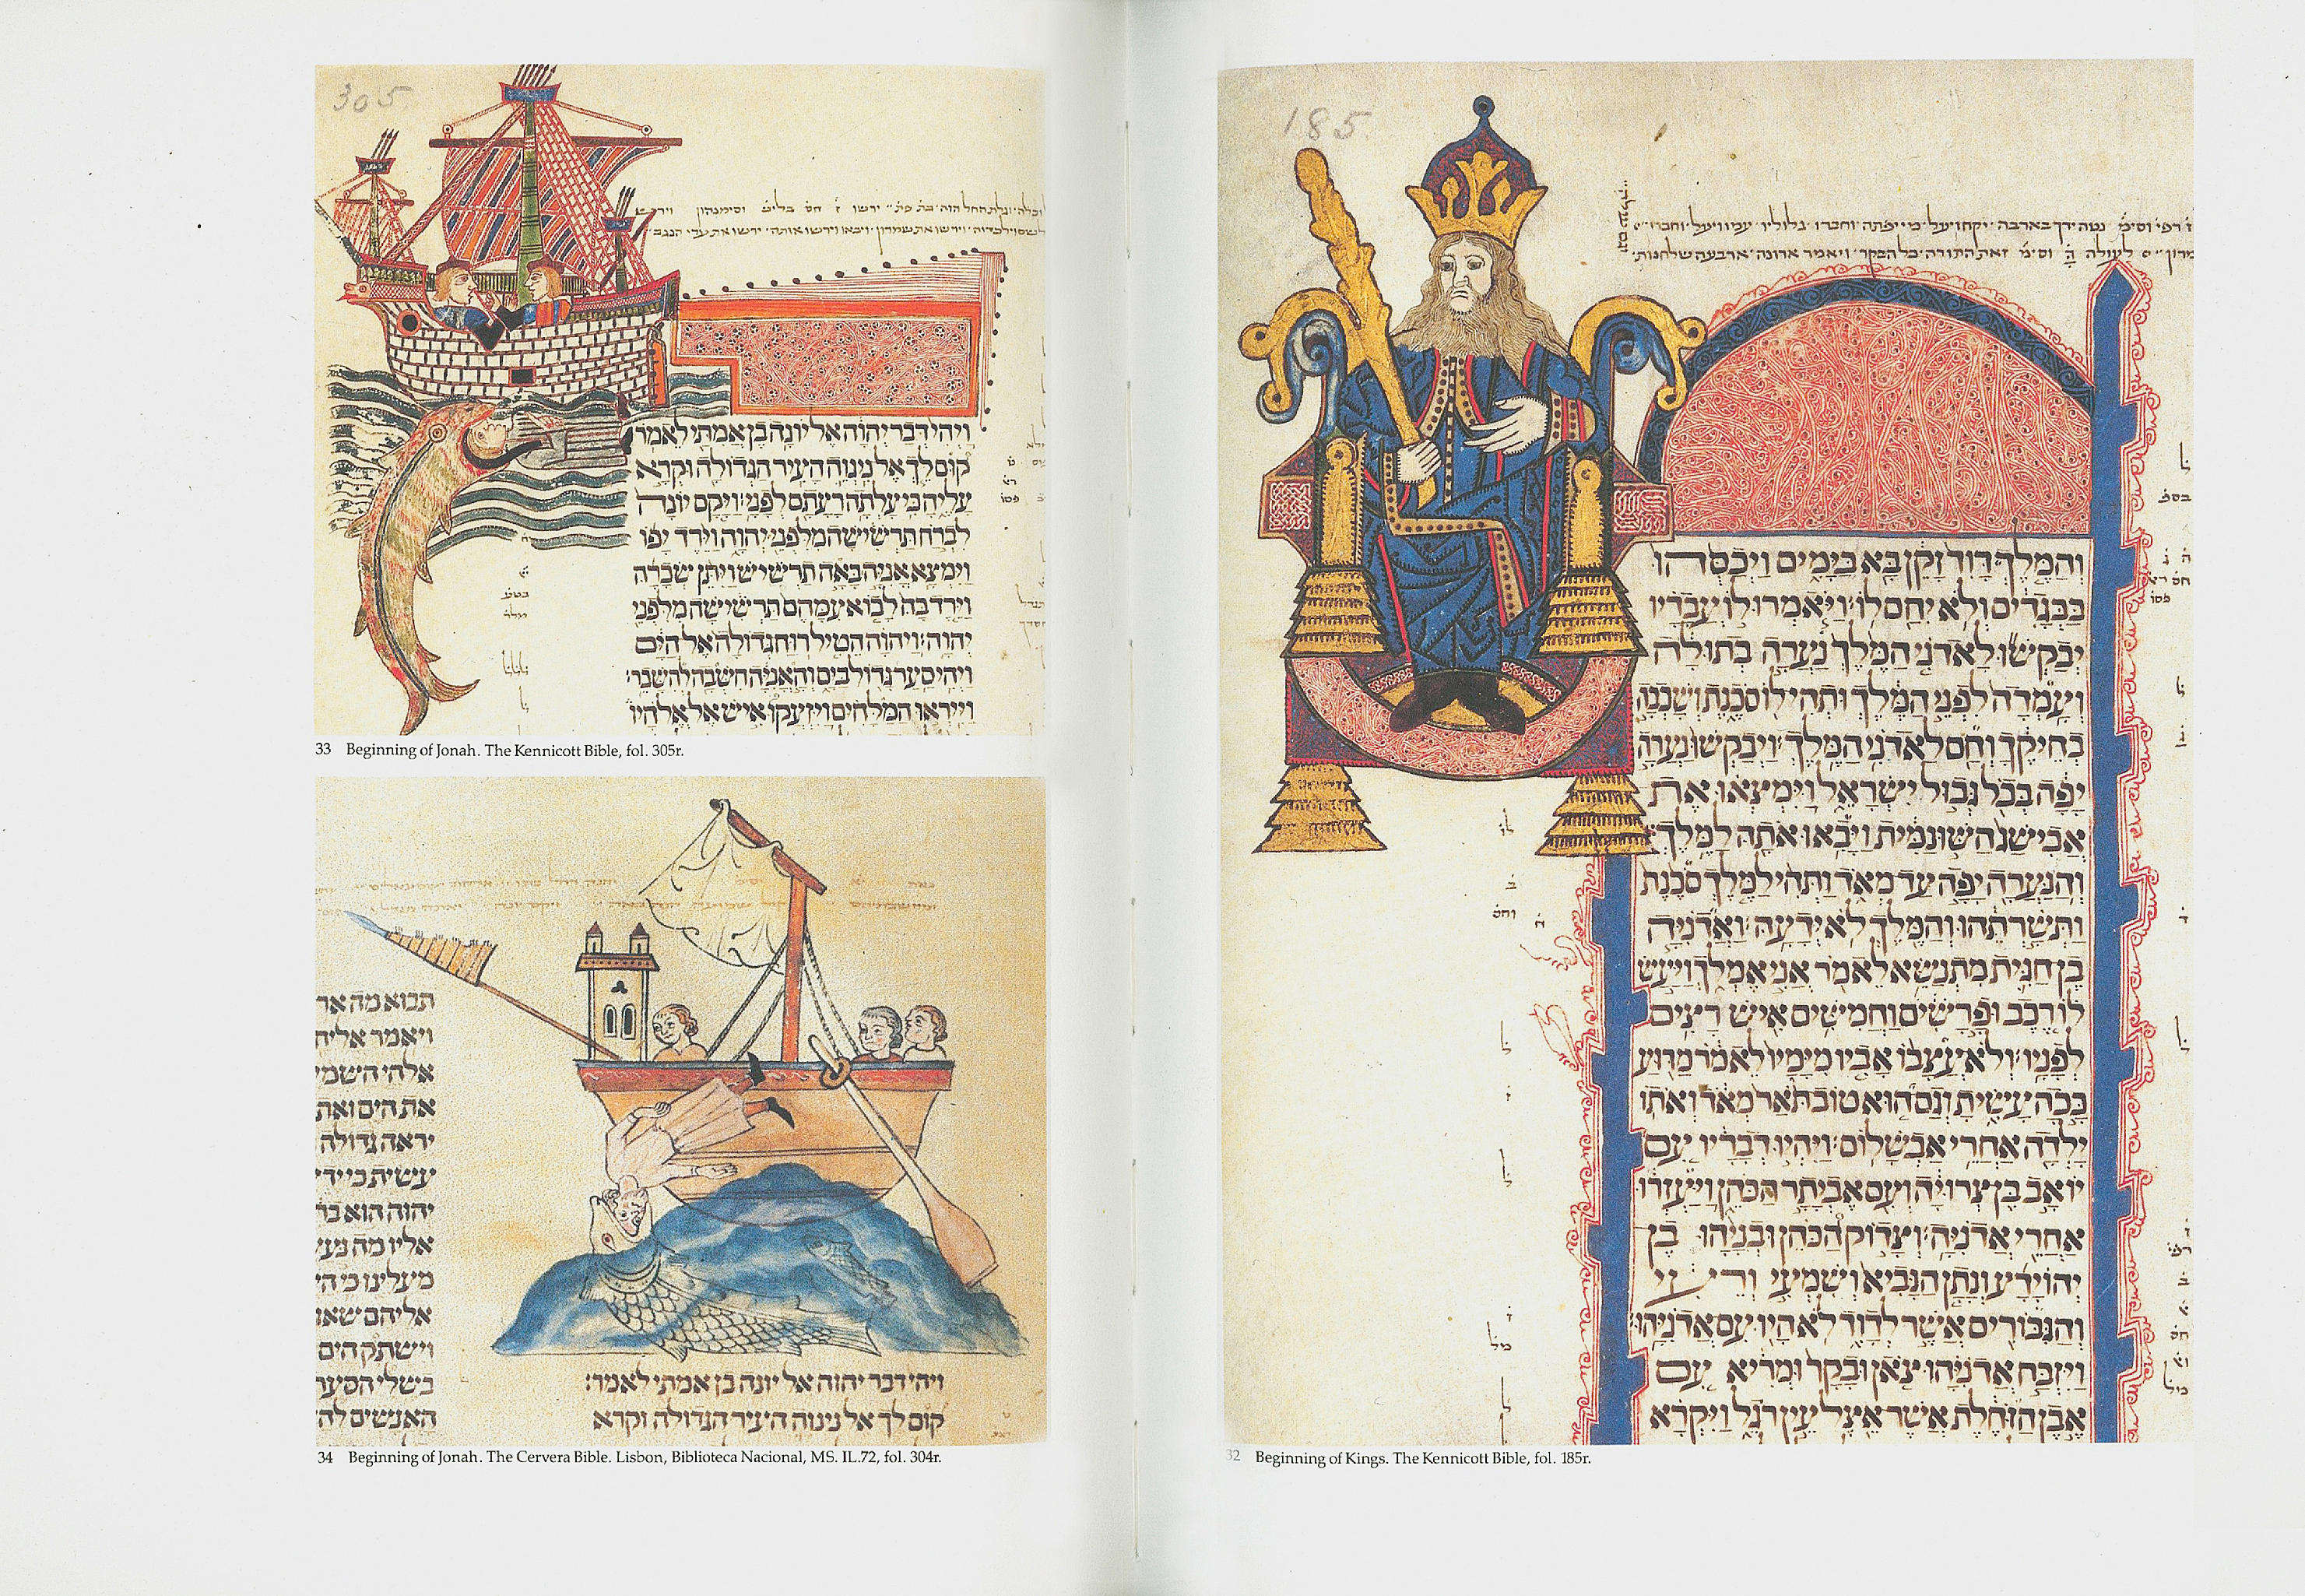 305
ויהי דבר יהוה אל יונה בן אמתי לאמר
קום לך אל נינוה העיר הגדולה וקרא
עליה כי עלתה רעתם לפני׃ ויקם יונה
לברח תרשישה מלפני יהוה וירד יפו
וימצא אניה באה תרשיש ויתן שכרה
וירד בה לבוא עמהם תרשישה מלפני
יהוה׃ ויהוה הטיל רוח גדולה אל הים
ויהי סער גדול בים והאניה חשבה להשבר׃
וייראו המלחים ויזעקו איש אל אלהיו
33 Beginning of Jonah. The Kennicott Bible, fol. 305r.
תבוא מה אר
ויאמר אליה
אלהי השמי
את הים ואת
יראה גדולה
עשית כי ידי
יהוה הוא בר
אליו מה נעש
מעלינו כי הי
אליהם שאו
וישתק הים
בשלי הסער
האנשים לה
ויהי דבר יהוה אל יונה בן אמתי לאמר׃
קום לך אל נינוה העיר הגדולה וקרא
34 Beginning of Jonah. The Cervera Bible. Lisbon, Biblioteca Nacional, MS. IL.72, fol. 304r.
185
והמלך דוד זקן בא בימים ויכסהו
בבגדים ולא יחם לו׃ ויאמרו לו עבדיו
יבקשו לאדני המלך נערה בתולה
ועמדה לפני המלך ותהי לו סכנת ושכבה
בחיקך וחם לאדני המלך׃ ויבקשו נערה
יפה בכל גבול ישראל וימצאו את
אבישג השונמית ויבאו אתה למלך׃
והנערה יפה עד מאד ותהי למלך סכנת
ותשרתהו והמלך לא ידעה׃ ואדניה
בן חגית מתנשא לאמר אני אמלך ויעש
לו רכב ופרשים וחמשים איש רצים
לפניו׃ ולא עצבו אביו מימיו לאמר מדוע
ככה עשית וגם הוא טוב תאר מאד ואתו
ילדה אחרי אבשלום׃ ויהיו דבריו עם
יואב בן צרויה ועם אביתר הכהן ויעזרו
אחרי אדניה׃ וצדוק הכהן ובניהו בן
יהוידע ונתן הנביא ושמעי ורעי
והגבורים אשר לדוד לא היו עם אדניהו׃
ויזבח אדניהו צאן ובקר ומריא עם
אבן הזחלת אשר אצל עין רגל ויקרא
32 Beginning of Kings. The Kennicott Bible, fol. 185r.